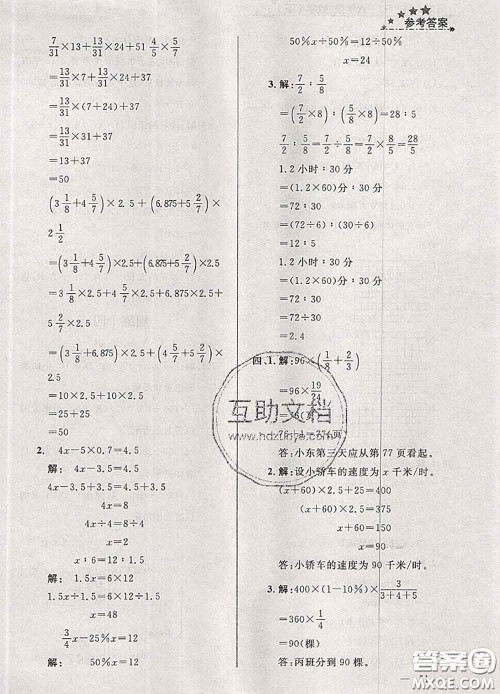 参考答案
7/31×13+13/31×24+51 4/5
=13/31×7+13/31×24+37
=13/31×(7+24)+37
=13/31×31+37
=13+37
=50
(3 1/8+4 5/7)×2.5+(6.875+5 2/7)×
2 1/2
=(3 1/8+4 5/7)×2.5+(6.875+5 2/7)×2.5
=3 1/8×2.5+4 5/7×2.5+6.875×2.5+
5 2/7×2.5
=(3 1/8+6.875)×2.5+(4 5/7+5 2/7)×
2.5
=10×2.5+10×2.5
=25+25
=50
2. 4x-5×0.7=4.5
解: 4x-3.5=4.5
4x-3.5+3.5=4.5+3.5
4x=8
4x÷4=8÷4
x=2
x∶6=12∶1.5
解: 1.5x=6×12
1.5x÷1.5=6×12÷1.5
x=48
3/4x-25%x=12
解: 50%x=12
50%x÷50%=12÷50%
x=24
3.解: 7/2∶5/8
=(7/2×8)∶(5/8×8)=28∶5
7/2∶5/8=7/2÷5/8=7/2×8/5=28/5
1.2小时∶30分
=(1.2×60)分∶30分
=72∶30
=(72÷6)∶(30÷6)
=12∶5
1.2小时∶30分
=(1.2×60)分∶30分
=72∶30
=72÷30
=2.4
四、1.解: 96×(1/8+2/3)
=96×19/24
=76(页)
答:小东第三天应从第77页看起。
2.解:设小轿车的速度为x千米/时。
(x+60)×2.5=375
(x+60)×2.5÷2.5=375÷2.5
x+60=150
x=90
答:小轿车的速度为90千米/时。
3.解: 400×(1-10%)×3/3+4+5
=360×1/4
=90(棵)
答:丙班分到90棵。
互助文档
www.hdzuoye.com
答案圈
MXQE.COM